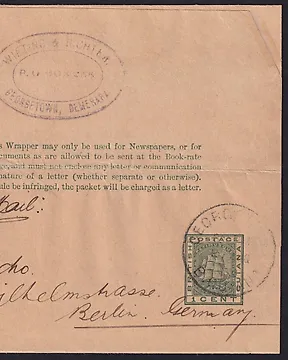 WIETING & RICHTER
P.O. BOX
GEORGETOWN, DEMERARA
s Wrapper may only be used for Newspapers, or for
cuments as are allowed to be sent at the Book-rate
ge, and must not enclose any letter or communication
nature of a letter (whether separate or otherwise).
ule be infringed, the packet will be charged as a letter.
ail:
GEORG
BRITISH POSTAGE GUIANA
1 CENT
cho.
ilhelmstrasse.
Berlin. Germany.